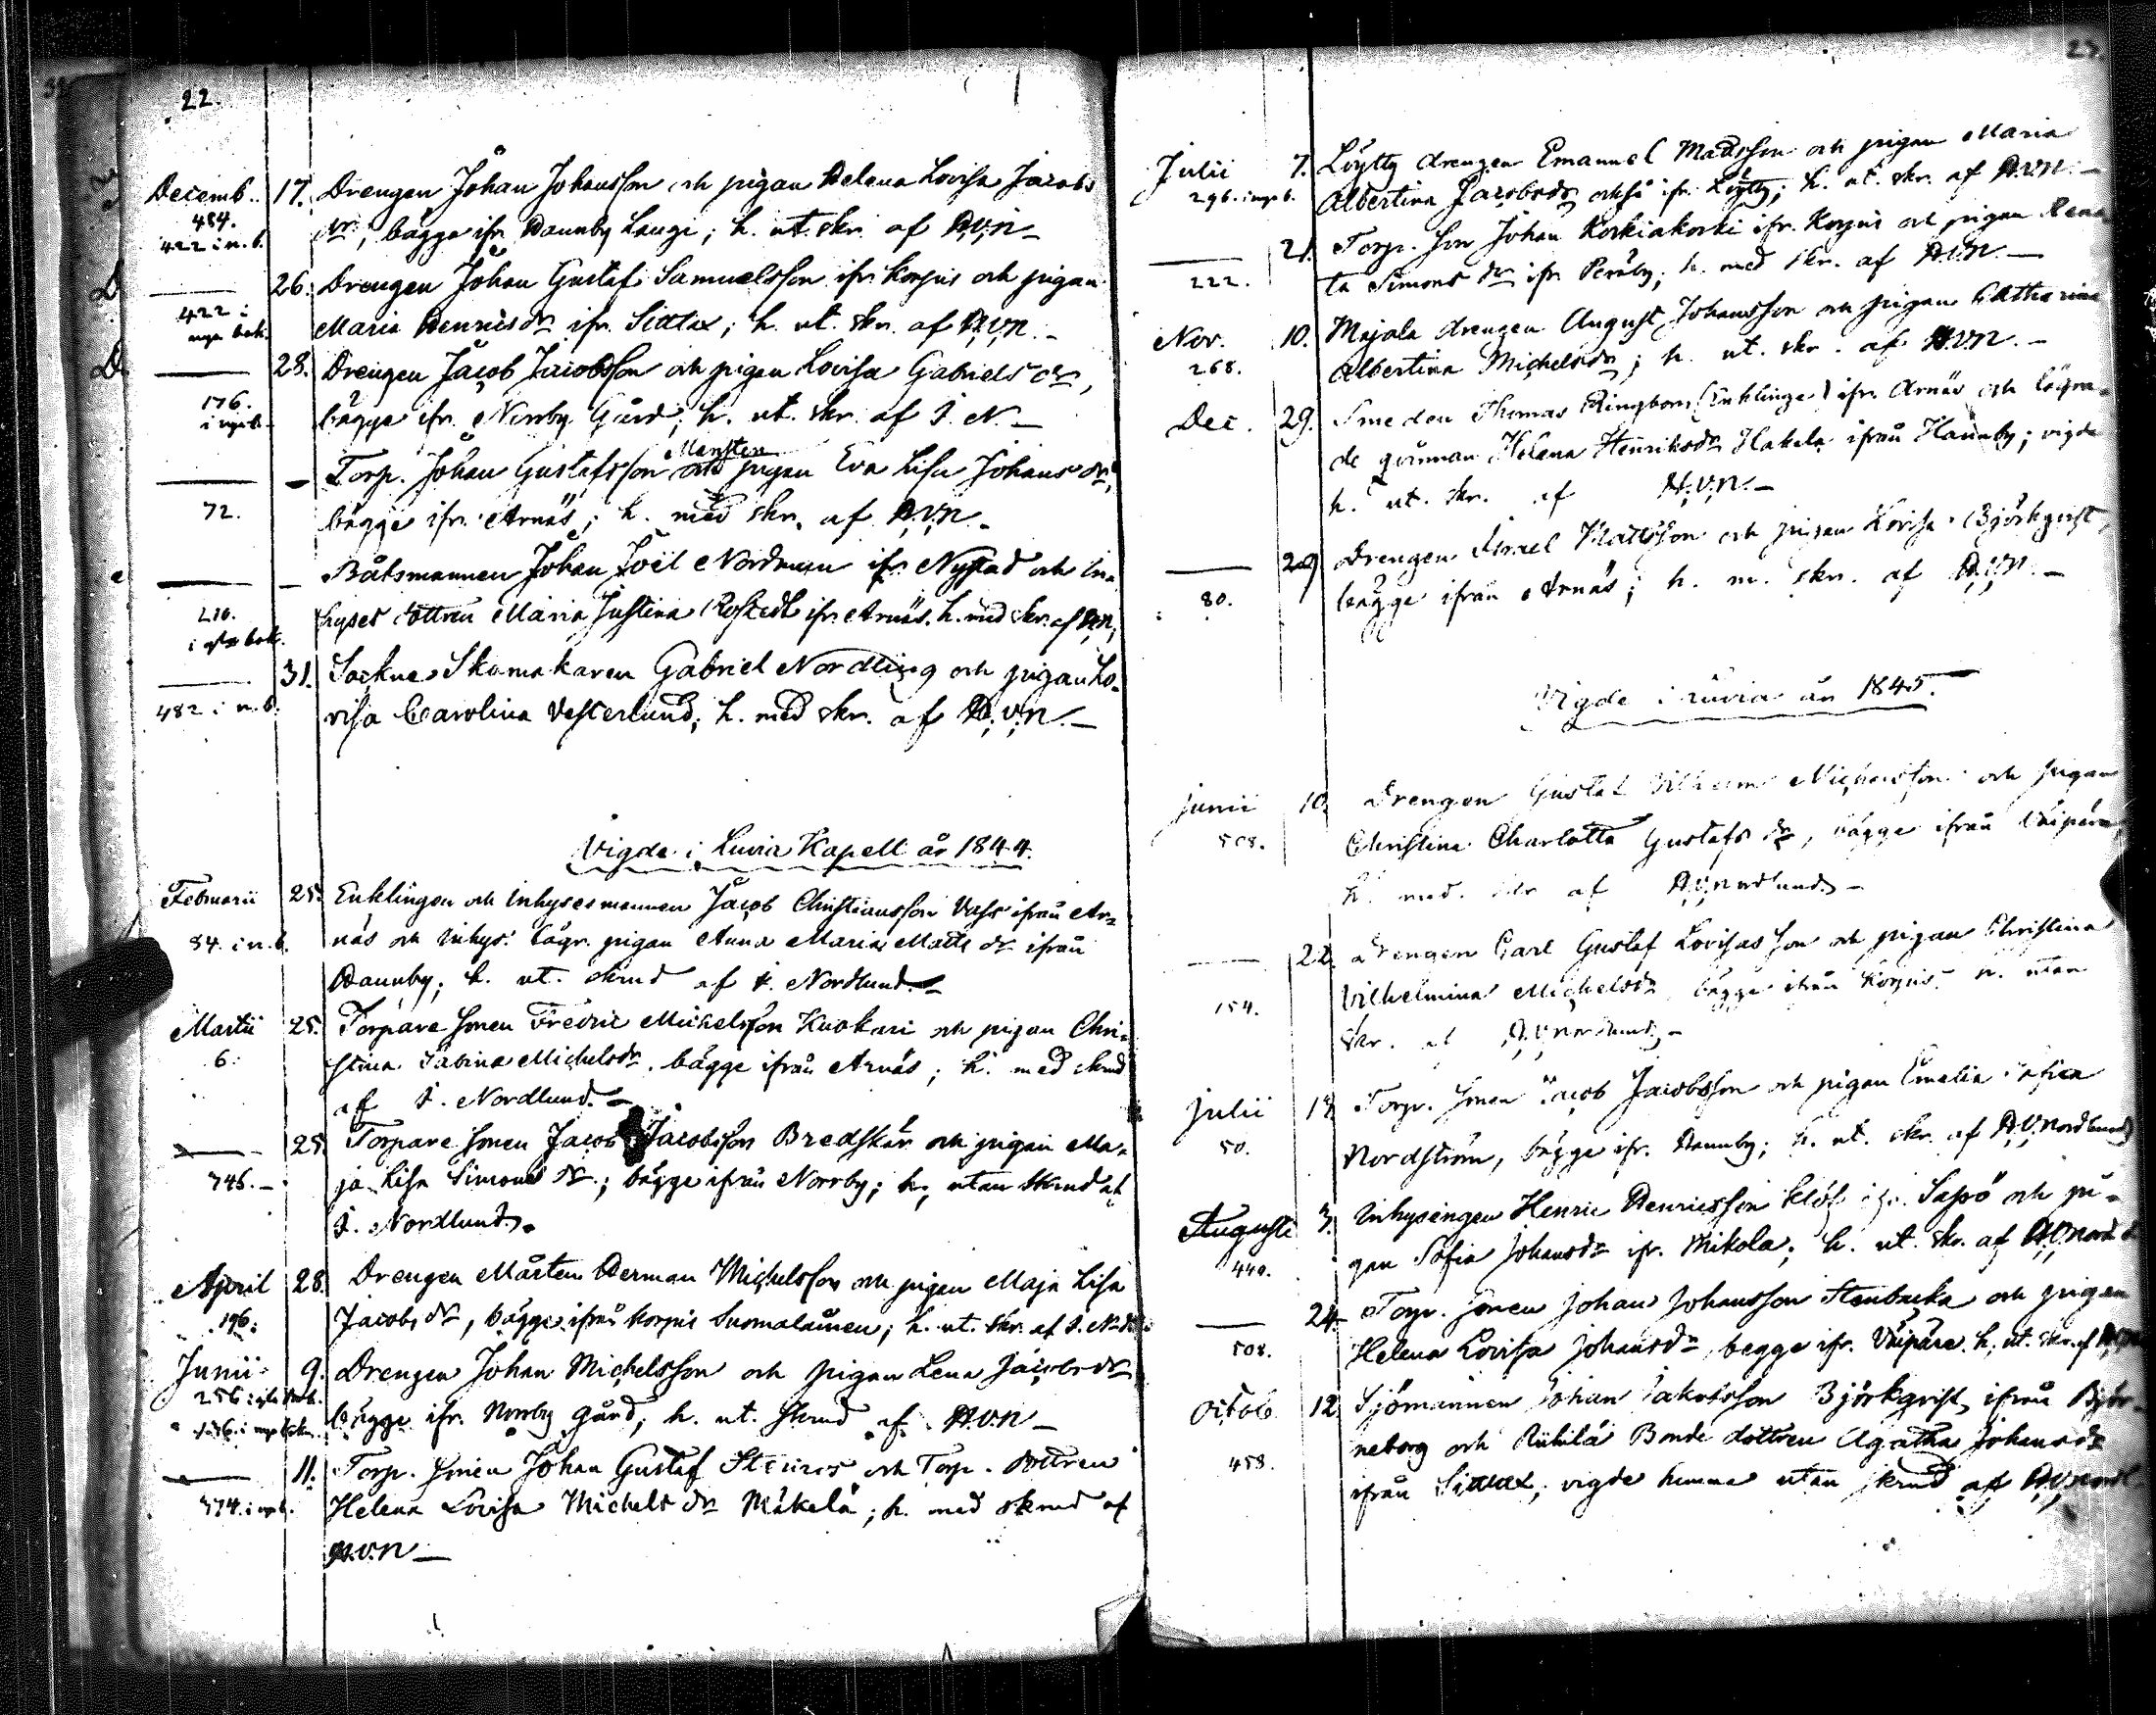 22.
Decemb. 17. Drengen Johan Johansson och pigan Helena Lovisa Jacobs
484. dr, bägge ifr. Hannby Laugi; h. ut. skr. af H.V.N.
422 i n. b.
26. Drengen Johan Gustaf Samuelsson ifr. Korpis och pigan
422 i Maria Henricsdr ifr. Sittlax; h. ut. skr. af H.V.N.
nya bok.
28. Drengen Jacob Jacobsson och pigan Lovisa Gabriels dr,
176. bägge ifr. Norrby Gård; h. ut. skr. af J. N.
i nya b.
Mansten
Torp. Johan Gustafsson och pigan Eva Lisa Johans dr,
72. bägge ifr. Arnäs; h. med skr. af H.V.N.
Båtsmannen Johan Joël Nordman ifr. Nystad och in-
210. hyses dottren Maria Justina Rostedt ifr. Arnäs. h. med skr. af H.V.N.
31. Sockne Skomakaren Gabriel Nordling och pigan Lo-
482 i n. b. visa Carolina Vesterlund, h. med skr. af H.V.N.
Vigde i Luvia Kapell år 1844.
Februarii 25. Enklingen och Inhysesmannen Jacob Christiansson Vass ifrån Ar-
84. i n. b. näs och Inhys. lägr. pigan Anna Maria Matts dr ifrån
Hannby; h. ut. skrud af J. Nordlund.
Martii 25. Torpare sonen Fredric Michelsson Kuokari och pigan Chri-
6. stina Sabina Michelsdr. bägge ifrån Arnäs; h. med skrud
af J. Nordlund.
25. Torpare sonen Jacob Jacobsson Bredskär och pigan Ma-
746. ja Lisa Simons dr.; bägge ifrån Norrby; h. utan skrud af
J. Nordlund.
April 28. Drengen Mårten Herman Michelsson och pigan Maja Lisa
196. Jacobs dr, bägge ifrån Korpis Suomalainen; h. ut. skr. af J. Nordl.
Junii 9. Drengen Johan Michelsson och pigan Lena Jacobs dr
256 bägge ifr. Norrby gård; h. ut. skrud af H.V.N.
11. Torp. sonen Johan Gustaf Stenroos och Torp. dottren
374. i nya b. Helena Lovisa Michels dr Mäkelä; h. med skrud af
H.V.N.
23.
Julii 7. Löytty drengen Emanuel Matsson och pigan Maria
296. i nya b. Albertina Jacobsdr också ifr. Löytty; h. ut. skr. af H.V.N.
21. Torp. son Johan Koskiakoski ifr. Korpis och pigan Rena
222. ta Simons dr ifr. Peräby; h. med skr. af H.V.N.
Nov. 10. Majala drengen August Johansson och pigan Catharina
268. Albertina Michelsdr; h. ut. skr. af H.V.N.
Dec. 29. Smeden Thomas Ringbom (Enklinge) ifr. Arnäs och lägra-
de qvinnan Helena Henriksdr Hakela ifrån Hannby; vigde
h. ut. skr. af H.V.N.
29 Drengen Israel Mattsson och pigan Lovisa Björkqvist,
80. bägge ifrån Arnäs; h. m. skr. af H.V.N.
Vigde i Luvia år 1845.
Junii 10. Drengen Gustaf Vilhelm Michelsson och pigan
508. Christina Charlotta Gustafs dr, bägge ifrån Väipäre
h. med. skr. af H.V. Nordlund.
22. Drengen Carl Gustaf Lovisas son och pigan Christina
154. Vilhelmina Michelsdr bägge ifrån Korpis. h. utan
skr. af H.V. Nordlund.
Julii Torp. sonen Jacob Jacobsson och pigan Emelia Sofia
50. Nordström, bägge ifr. Hannby; h. ut. skr. af H.V. Nordlund
Augusti 3. Inhysingen Henric Henricsson ifr. Sassö och pi-
440. gan Sofia Johansdr ifr. Mikola; h. ut. skr. af H.V. Nord
24. Torp. sonen Johan Johansson Stenbacka och pigan
508. Helena Lovisa Johansdr, begge ifr. Väipäre. h. ut. skr. af
Octob 12. Sjömannen Johan Jakobsson Björkqvist, ifrån Björ-
458. neborg och Bonde dottren Agatha Johansdr
ifrån Sittlax; vigde hemma utan skrud af H.V. Nordl